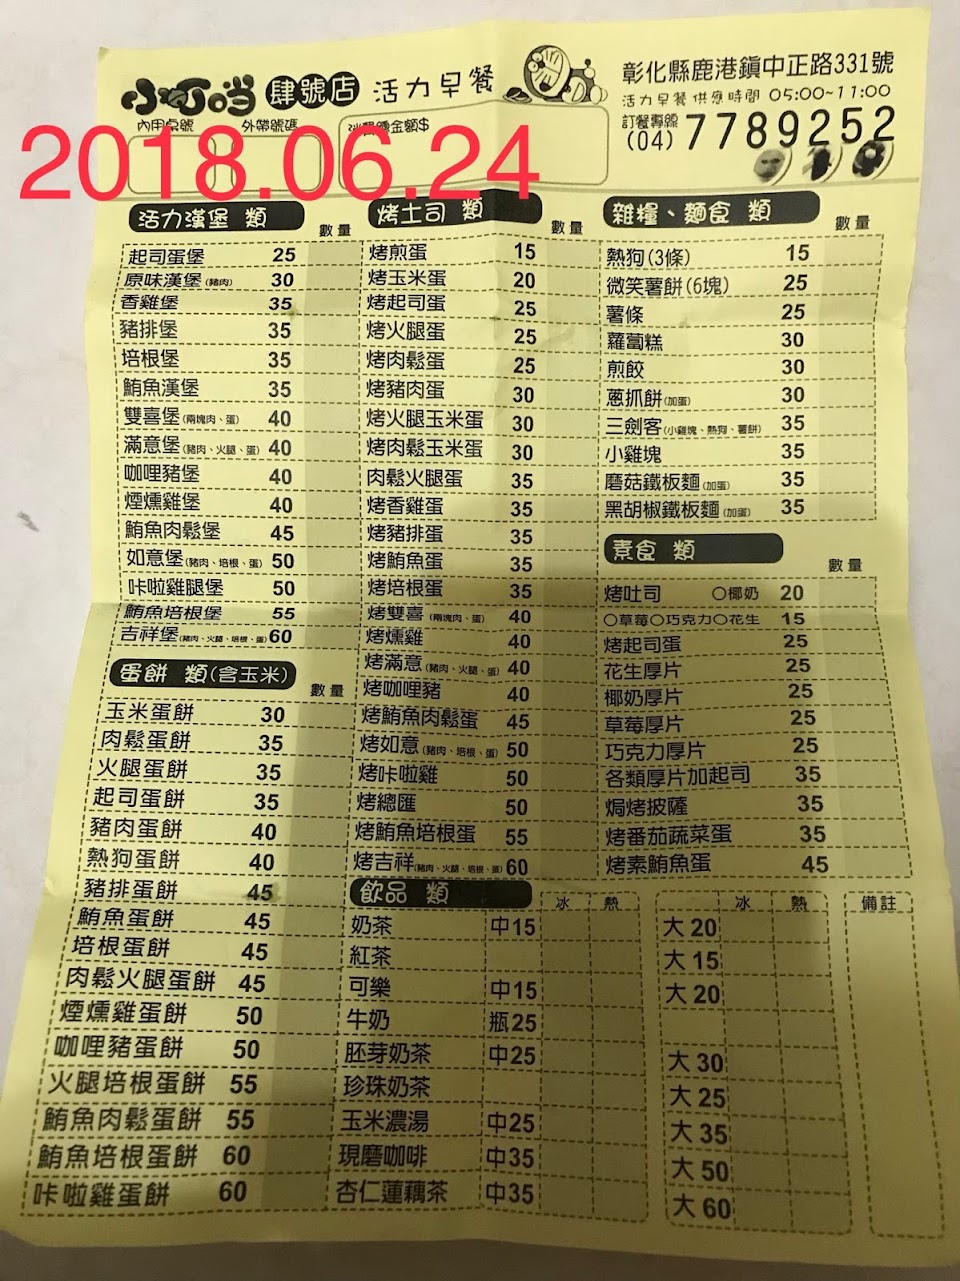 小叮噹 肆號店 活力早餐
彰化縣鹿港鎮中正路331號
活力早餐供應時間 05:00~11:00
訂餐專線
(04) 7789252
內用桌號 外帶號碼 金額$
2018.06.24
活力漢堡 類 數量
起司蛋堡 25
原味漢堡(豬肉) 30
香雞堡 35
豬排堡 35
培根堡 35
鮪魚漢堡 35
雙喜堡(兩塊肉、蛋) 40
滿意堡(豬肉、火腿、蛋) 40
咖哩豬堡 40
煙燻雞堡 40
鮪魚肉鬆堡 45
如意堡(豬肉、培根、蛋) 50
咔啦雞腿堡 50
鮪魚培根堡 55
吉祥堡(豬肉、火腿、培根、蛋) 60
蛋餅 類(含玉米) 數量
玉米蛋餅 30
肉鬆蛋餅 35
火腿蛋餅 35
起司蛋餅 35
豬肉蛋餅 40
熱狗蛋餅 40
豬排蛋餅 45
鮪魚蛋餅 45
培根蛋餅 45
肉鬆火腿蛋餅 45
煙燻雞蛋餅 50
咖哩豬蛋餅 50
火腿培根蛋餅 55
鮪魚肉鬆蛋餅 55
鮪魚培根蛋餅 60
咔啦雞蛋餅 60
烤土司 類 數量
烤煎蛋 15
烤玉米蛋 20
烤起司蛋 25
烤火腿蛋 25
烤肉鬆蛋 25
烤豬肉蛋 30
烤火腿玉米蛋 30
烤肉鬆玉米蛋 30
肉鬆火腿蛋 35
烤香雞蛋 35
烤豬排蛋 35
烤鮪魚蛋 35
烤培根蛋 35
烤雙喜(兩塊肉、蛋) 40
烤燻雞 40
烤滿意(豬肉、火腿、蛋) 40
烤咖哩豬 40
烤鮪魚肉鬆蛋 45
烤如意(豬肉、培根、蛋) 50
烤咔啦雞 50
烤總匯 50
烤鮪魚培根蛋 55
烤吉祥(豬肉、火腿、培根、蛋) 60
雜糧、麵食 類 數量
熱狗(3條) 15
微笑薯餅(6塊) 25
薯條 25
蘿蔔糕 30
煎餃 30
蔥抓餅(加蛋) 30
三劍客(小雞塊、熱狗、薯餅) 35
小雞塊 35
磨菇鐵板麵(加蛋) 35
黑胡椒鐵板麵(加蛋) 35
素食 類 數量
烤吐司 ○椰奶 20
○草莓○巧克力○花生 15
烤起司蛋 25
花生厚片 25
椰奶厚片 25
草莓厚片 25
巧克力厚片 25
各類厚片加起司 35
焗烤披薩 35
烤番茄蔬菜蛋 35
烤素鮪魚蛋 45
飲品 類 冰 熱 冰 熱 備註
奶茶 中15 大20
紅茶 大15
可樂 中15 大20
牛奶 瓶25
胚芽奶茶 中25 大30
珍珠奶茶 大25
玉米濃湯 中25 大35
現磨咖啡 中35 大50
杏仁蓮藕茶 中35 大60